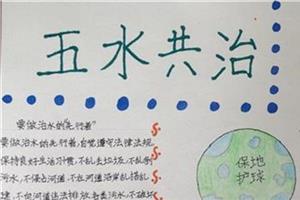 五水共治
要做治水的"先行者"
要做治水的"先行者",自觉遵守法律法规,
保持良好生活习惯,不乱丢垃圾,不乱倒
污水,不侵占河道,不在河道沿岸乱搭乱
建,不向河道违法排放各类污水,不破坏
保地
护球